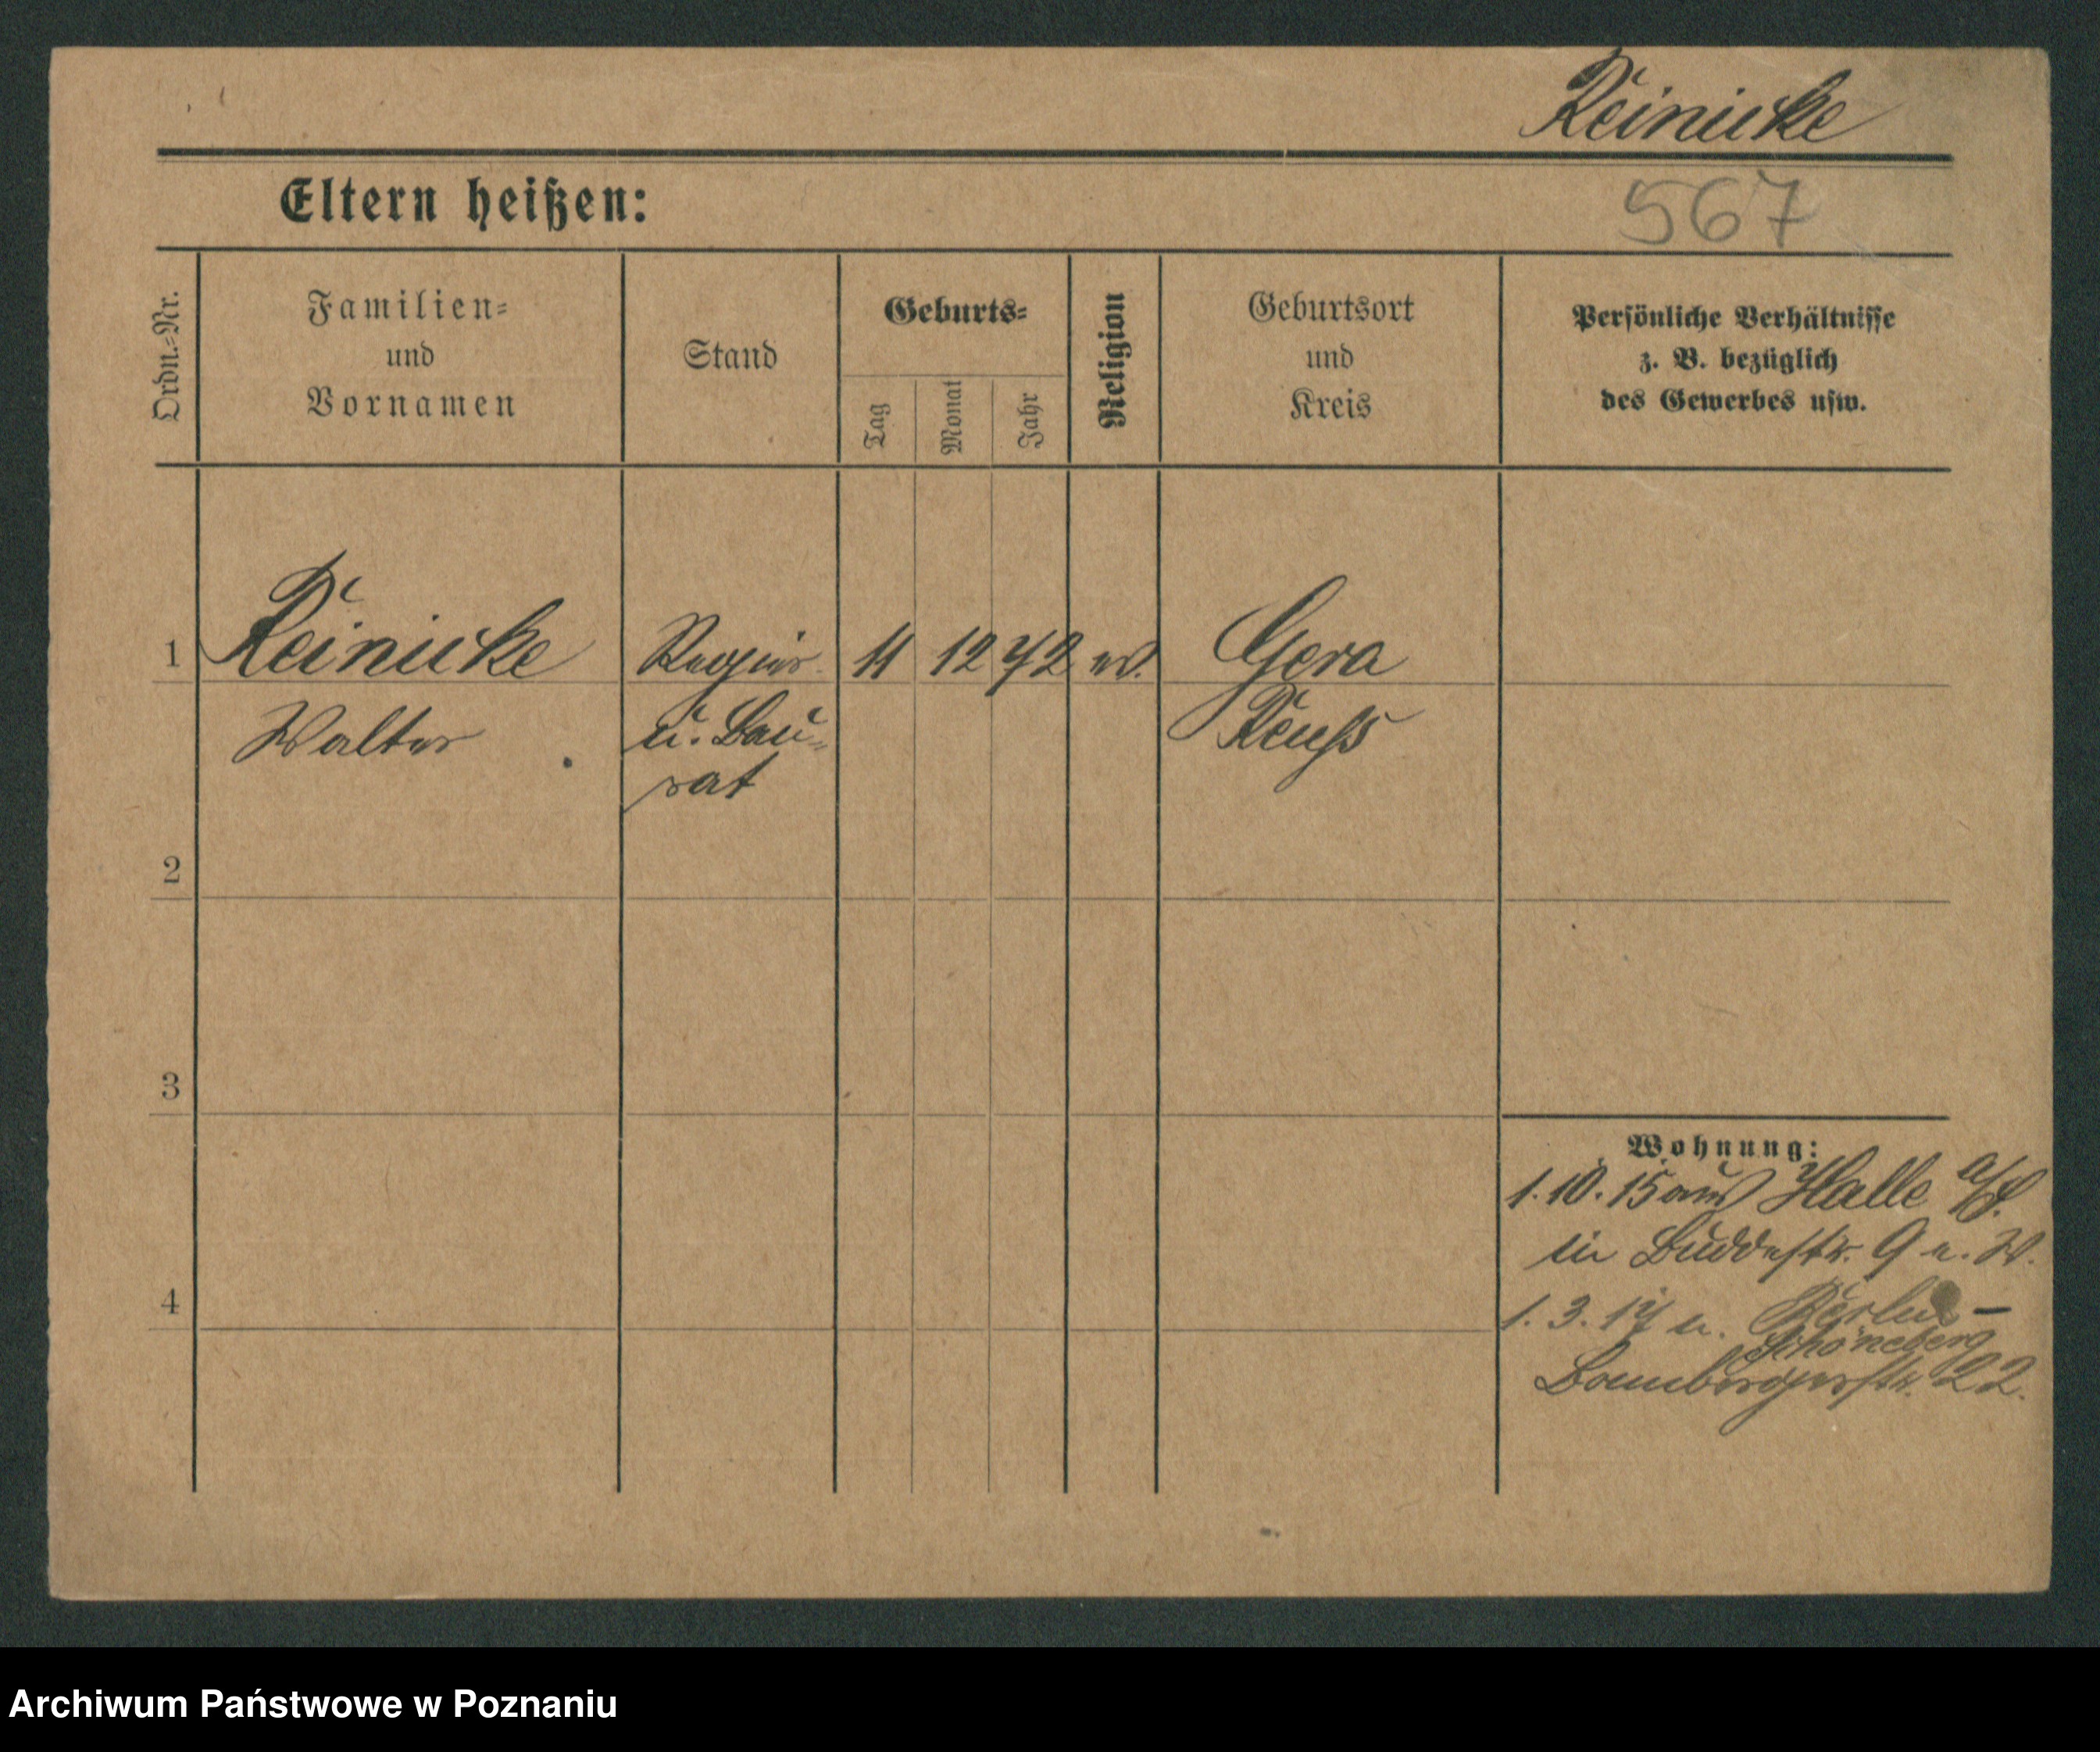 Reinicke
Eltern heißen:
567
Ordn.-Nr.
Familien-
und
Vornamen
Stand
Geburts-
Tag
Monat
Jahr
Religion
Geburtsort
und
Kreis
Persönliche Verhältnisse
z. B. bezüglich
des Gewerbes usw.
1
Reinicke
Walter
Regier.
u. Bau-
rat
11 12 72 ev.
Gera
Reuss
2
3
4
Wohnung:
1. 10. 15 aus Halle a/S.
in Buddestr. 9 n. W.
1. 3. 17 n. Berlin –
Schöneberg
Bambergerstr. 22.
Archiwum Państwowe w Poznaniu